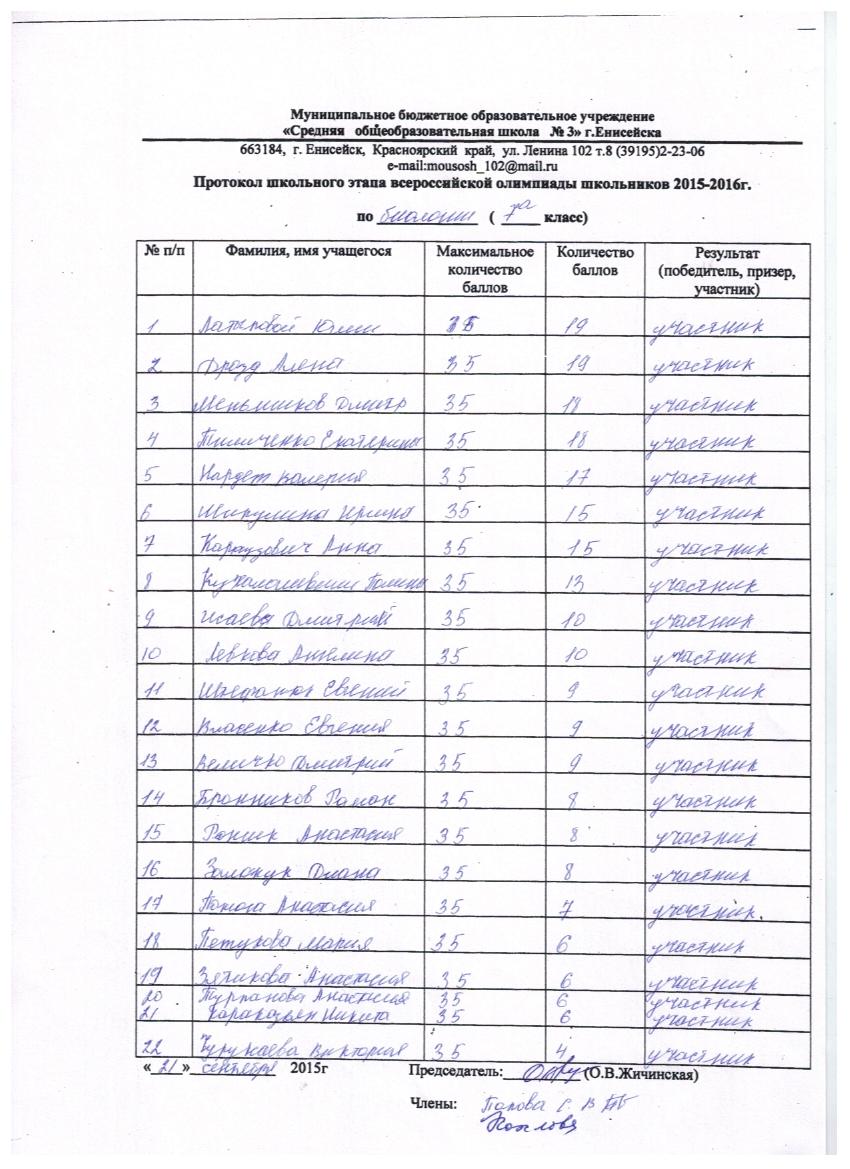 Муниципальное бюджетное образовательное учреждение
«Средняя общеобразовательная школа № 3» г.Енисейска
663184, г. Енисейск, Красноярский край, ул. Ленина 102 т.8 (39195)2-23-06
e-mail:mousosh_102@mail.ru
Протокол школьного этапа всероссийской олимпиады школьников 2015-2016г.
по биологии ( 7а класс)
№ п/п Фамилия, имя учащегося Максимальное количество баллов Количество баллов Результат (победитель, призер, участник)
1 35 19 участник
2 Дрозд Алена 35 19 участник
3 Меньшиков Дмитр 35 18 участник
4 Екатерины 35 18 участник
5 Валерия 35 17 участник
6 Шикулина Ирина 35 15 участник
7 Караузович Анна 35 15 участник
8 Полины 35 13 участник
9 Исаева Дмитрий 35 10 участник
10 Левкова Ангелина 35 10 участник
11 Евгений 35 9 участник
12 Власенко Евгения 35 9 участник
13 Величко Дмитрий 35 9 участник
14 Бронников Роман 35 8 участник
15 Анастасия 35 8 участник
16 Диана 35 8 участник
17 Анастасия 35 7 участник.
18 Петухова Мария 35 6 участник
19 Зятикова Анастасия 35 6 участник
20 Турпанова Анастасия 35 6 участник
21 Никита 35 6 участник
22 Виктория 35 4 участник
« 21 » сентября 2015г Председатель: (О.В.Жичинская)
Члены: Попова С. В
Козлова